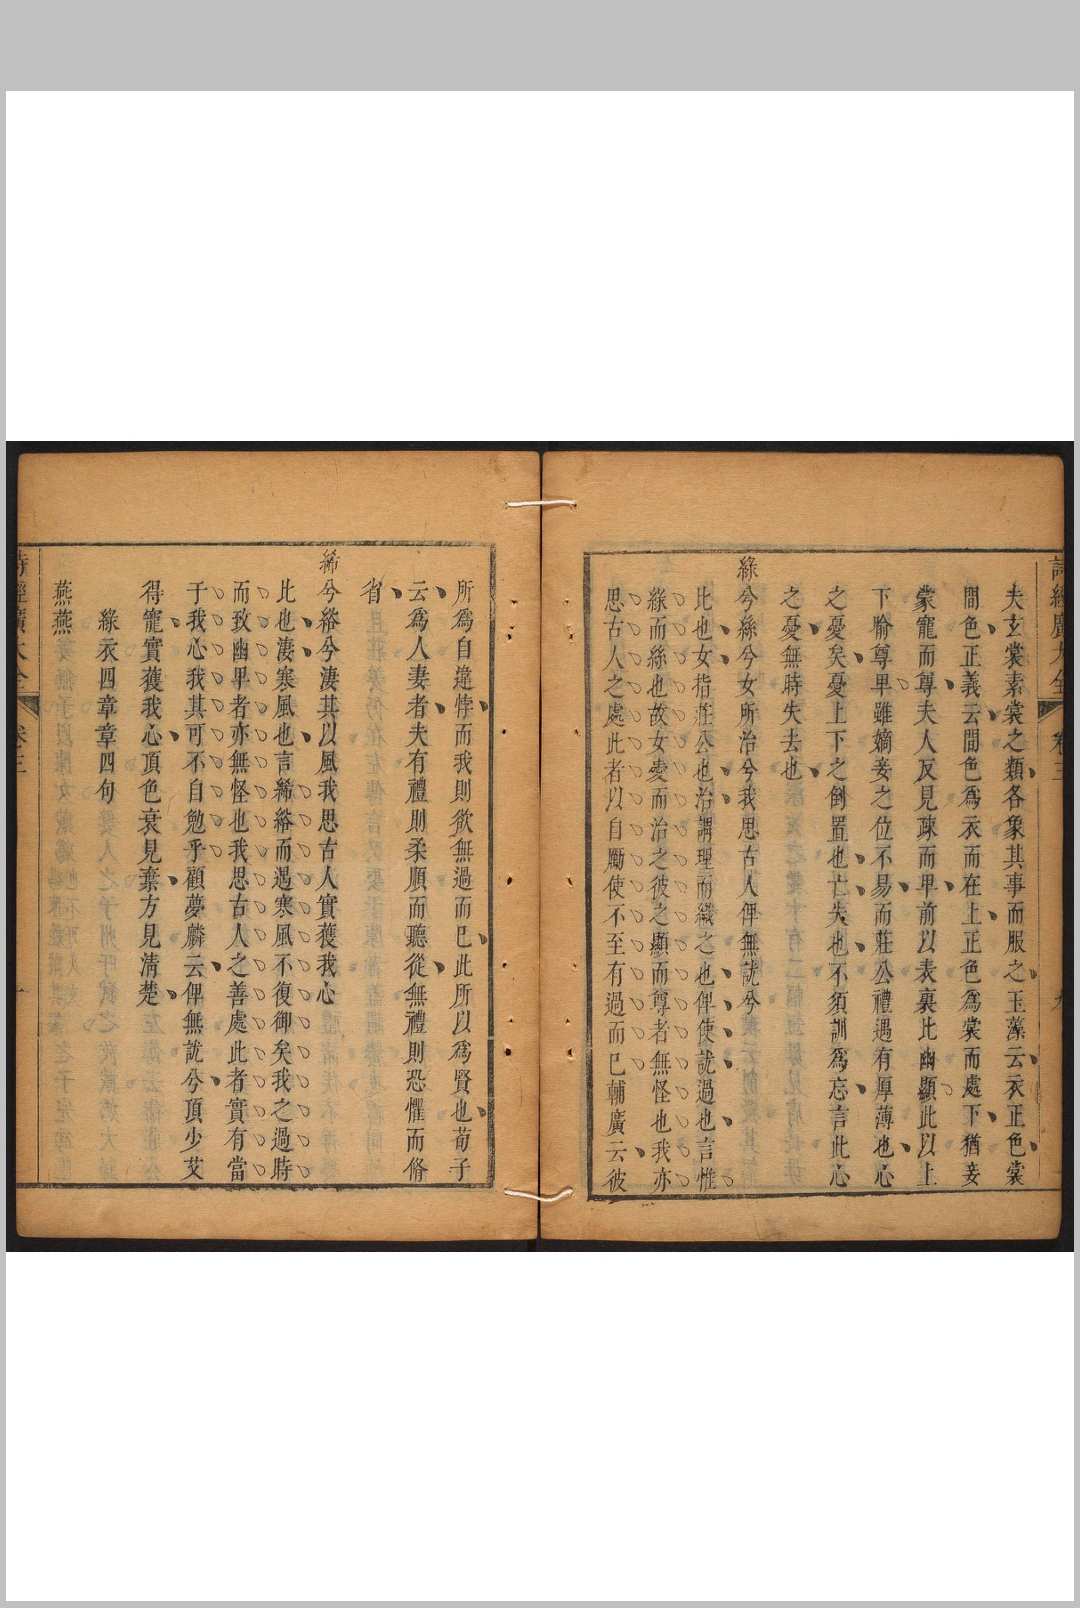 詩經廣大全
卷三
九
夫玄裳素裳之類各象其事而服之玉藻云衣正色裳
間色正義云間色為衣而在上正色為裳而處下猶妾
蒙寵而尊夫人反見疎而卑前以表裏比幽顯此以上
下喻尊卑雖嫡妾之位不易而莊公禮遇有厚薄也心
之憂矣憂上下之倒置也亡失也不須訓為忘言此心
之憂無時失去也
綠兮絲兮女所治兮我思古人俾無訧兮
比也女指莊公也治謂理而織之也俾使訧過也言惟
綠而絲也故女愛而治之彼之顯而尊者無怪也我亦
思古人之處此者以自勵使不至有過而已輔廣云彼
所為自違悖而我則欲無過而已此所以為賢也荀子
云為人妻者夫有禮則柔順而聽從無禮則恐懼而脩
省
絺兮綌兮淒其以風我思古人實獲我心
比也淒寒風也言絺綌而遇寒風不復御矣我之過時
而致幽卑者亦無怪也我思古人之善處此者實有當
于我心我其可不自勉乎顧夢麟云俾無訧兮頂少艾
得寵實獲我心頂色衰見棄方見清楚
綠衣四章章四句
燕燕
詩經廣大全
卷三